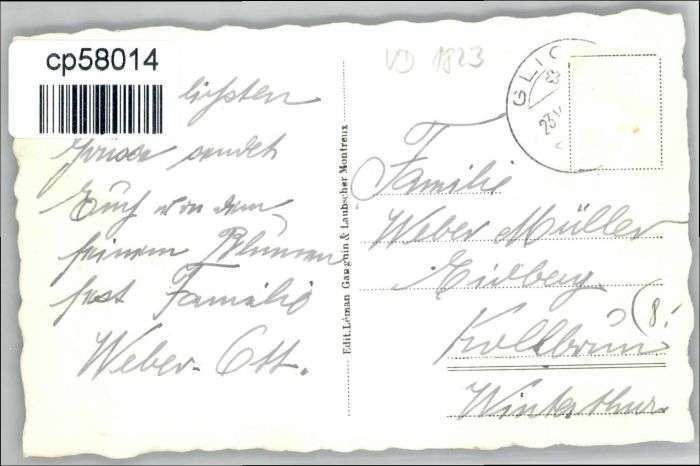 cp58014
VD 1823
GLIO
23 V
lichsten
Grüsse sendet
Euch von dem
feinem Blumen
fest Familie
Weber-Ott.
Edit. Léman Gauguin & Laubscher Montreux
Familie
Weber Müller
Eidberg
Kollbrun
Winterthur.
8.-